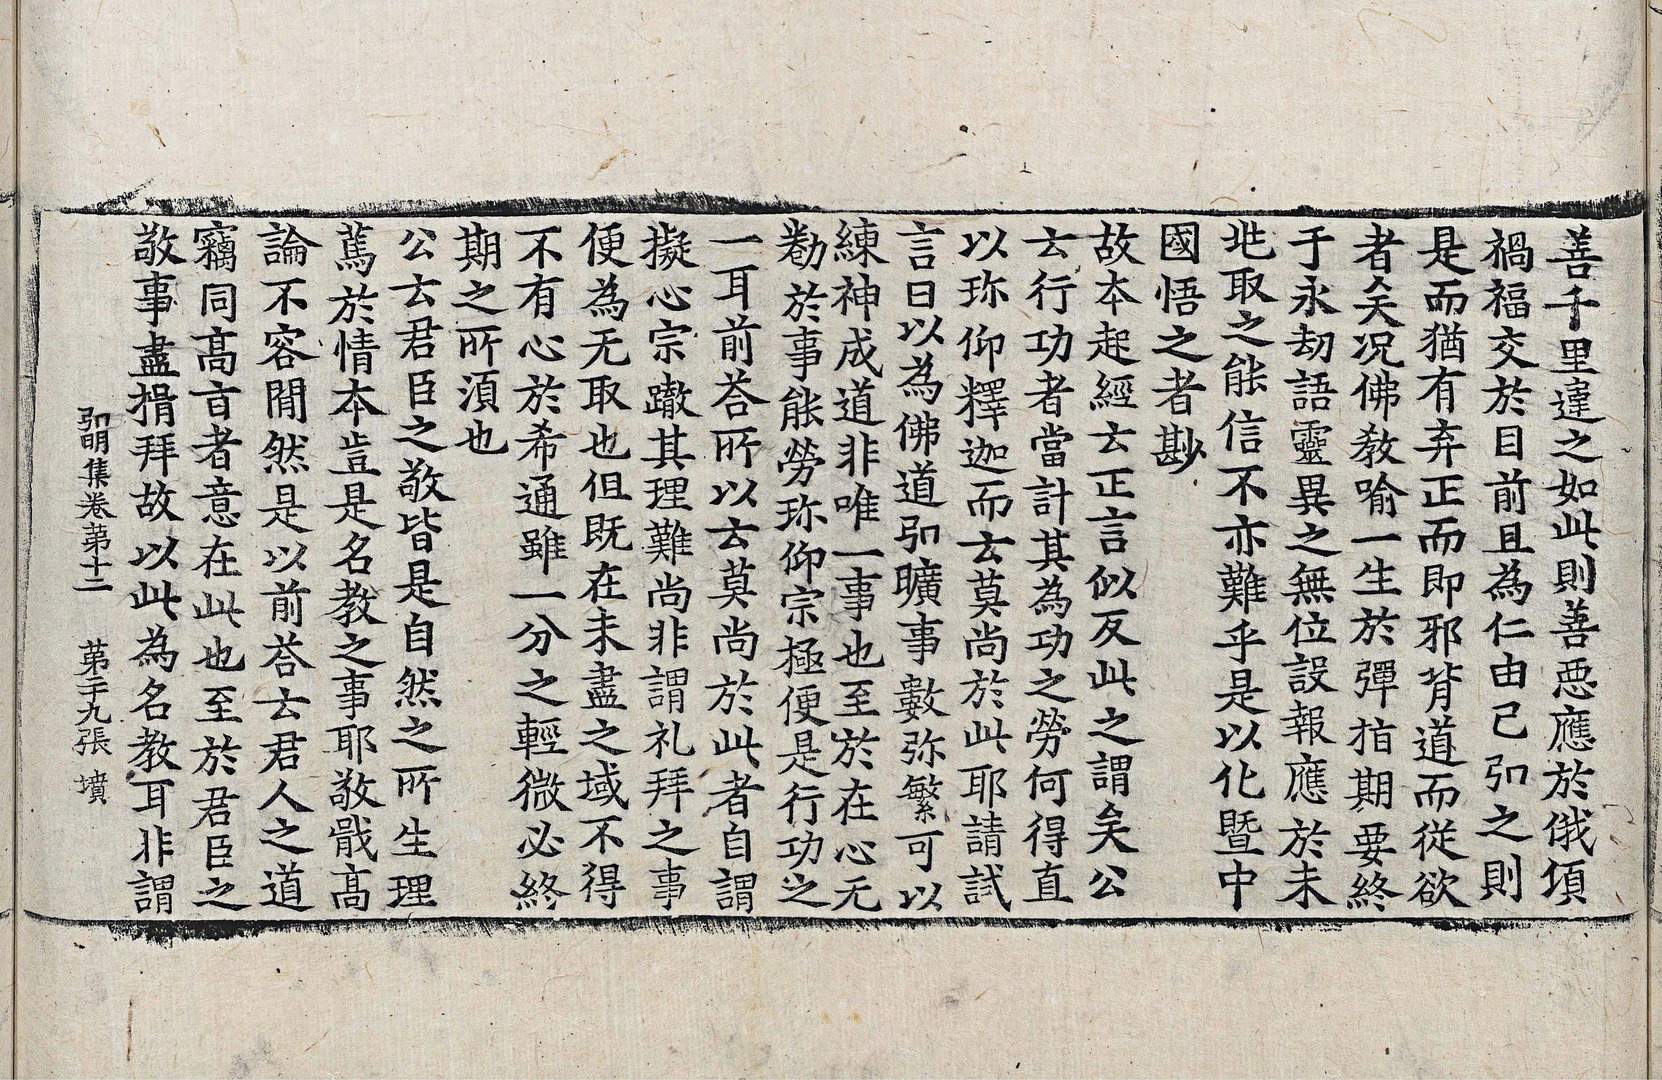 善千里違之如此則善惡應於俄頃
禍福交於目前且為仁由己弘之則
是而猶有弃正而即邪背道而従欲
者矣况佛教喻一生於彈指期要終
于永劫語靈異之無位設報應於未
兆取之能信不亦難乎是以化暨中
國悟之者尠
故本起經云正言似反此之謂矣公
云行功者當計其為功之勞何得直
以珎仰釋迦而云莫尚於此耶請試
言曰以為佛道弘曠事數弥繁可以
練神成道非唯一事也至於在心无
勌於事能勞珎仰宗極便是行功之
一耳前荅所以云莫尚於此者自謂
擬心宗轍其理難尚非謂礼拜之事
便為无取也但既在未盡之域不得
不有心於希通雖一分之輕微必終
期之所湏也
公云君臣之敬皆是自然之所生理
篤於情本豈是名教之事耶敬戬髙
論不容閒然是以前荅云君人之道
竊同髙旨者意在此也至於君臣之
敬事盡揖拜故以此為名教耳非謂
弘明集卷第十二 第二十九張 墳